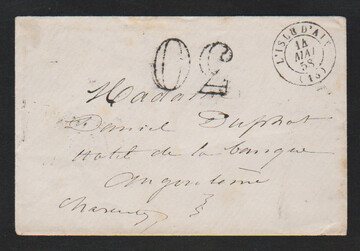 30
L'ISLE D'AIX
14
MAI
58
(16)
Madame
Daniel Duprat
Hotel de la banque
Angoulême
Charente